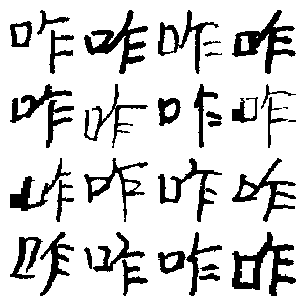 咋咋咋咋
咋咋咋咋
咋咋咋咋
咋咋咋咋